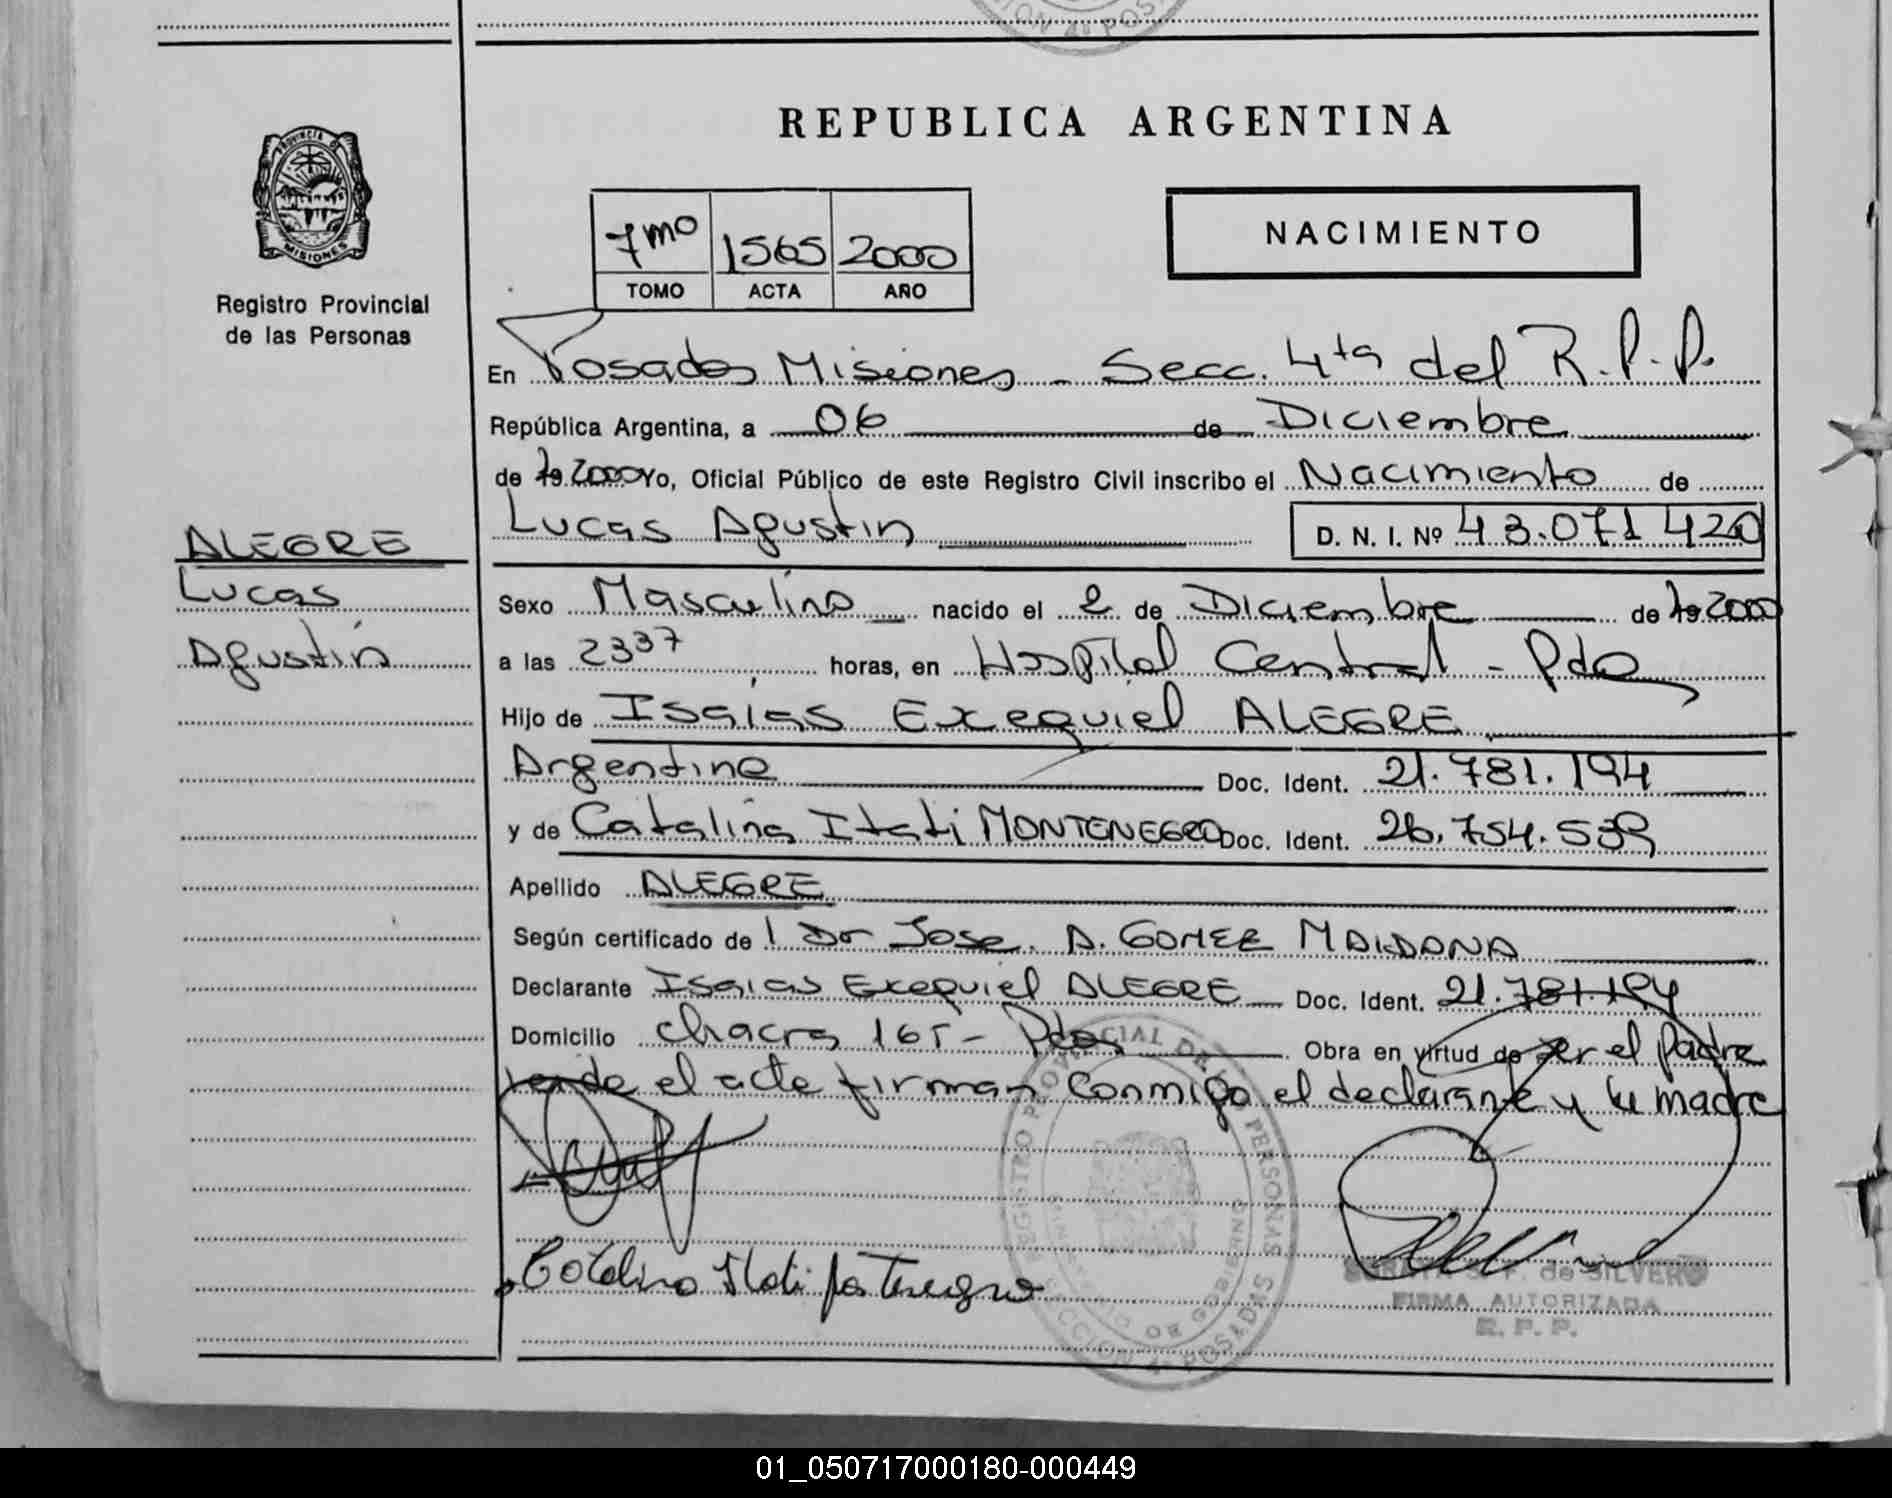 CION 4ª POSA
REPUBLICA ARGENTINA
PROVINCIA DE MISIONES
Registro Provincial
de las Personas
7mo 1565 2000
TOMO ACTA AÑO
NACIMIENTO
En Posadas Misiones - Secc. 4ta del R.P.P.
República Argentina, a 06 de Diciembre
de 19 2000 Yo, Oficial Público de este Registro Civil inscribo el Nacimiento de
Lucas Agustin D. N. I. Nº 43.071 420
ALEGRE
Lucas
Agustin
Sexo Masculino nacido el 2 de Diciembre de 19 2000
a las 2337 horas, en Hospital Central - Pdas
Hijo de Isaias Exequiel ALEGRE
Argentino Doc. Ident. 21.781.194
y de Catalina Itati MONTENEGRO Doc. Ident. 26.754.539
Apellido ALEGRE
Según certificado de l Dr Jose. A. GOMEZ MALDONA
Declarante Isaias Exequiel ALEGRE Doc. Ident. 21.781.194
Domicilio chacra 165 - Pdas Obra en virtud de ser el padre
el acta firman conmigo el declarante y la madre
REGISTRO PROVINCIAL DE LAS PERSONAS
MINISTERIO DE GOBIERNO
SECCION 4ª POSADAS
Catalina Itati Montenegro
de SILVERO
FIRMA AUTORIZADA
R. P. P.
01_050717000180-000449